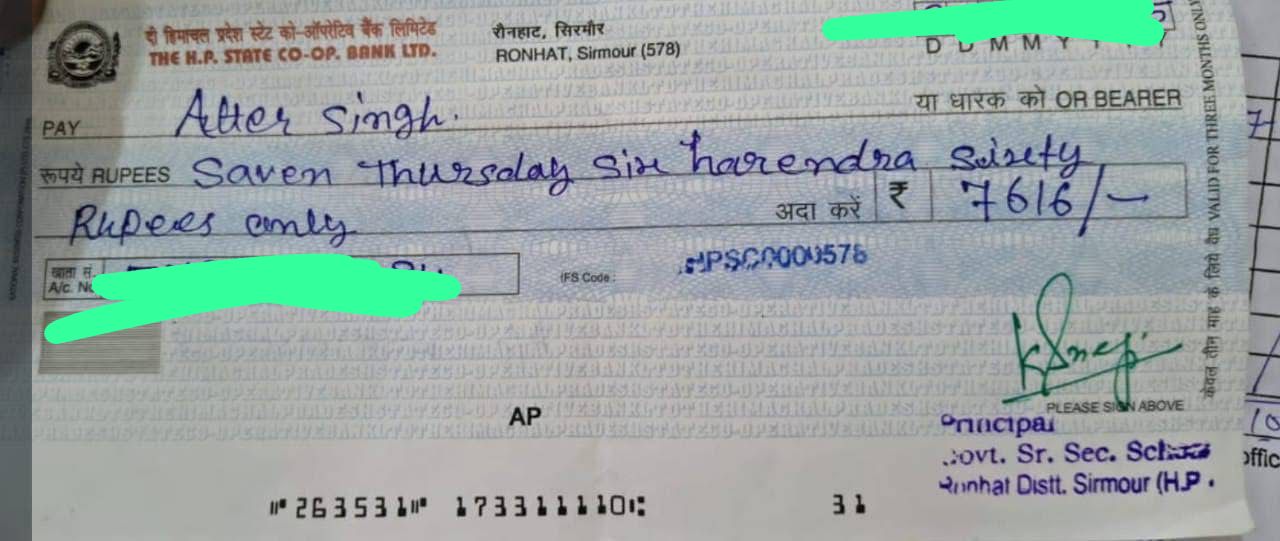 दी हिमाचल प्रदेश स्टेट को-ऑपरेटिव बैंक लिमिटेड
THE H.P. STATE CO-OP. BANK LTD.
रौनहाट, सिरमौर
RONHAT, Sirmour (578)
D D M M Y Y Y Y
PAY Atter Singh.
या धारक को OR BEARER
रूपये RUPEES Saven Thursday Six harendra Sixety
Rupees only
अदा करें ₹ 7616/-
खाता सं.
A/c. No.
IFS Code :
HPSC0000578
केवल तीन माह के लिये वैध VALID FOR THREE MONTHS ONLY
PLEASE SIGN ABOVE
AP
Principal
Govt. Sr. Sec. School
Ronhat Distt. Sirmour (H.P.
⑈263531⑈ 173311110⑆ 31
7
10
offic